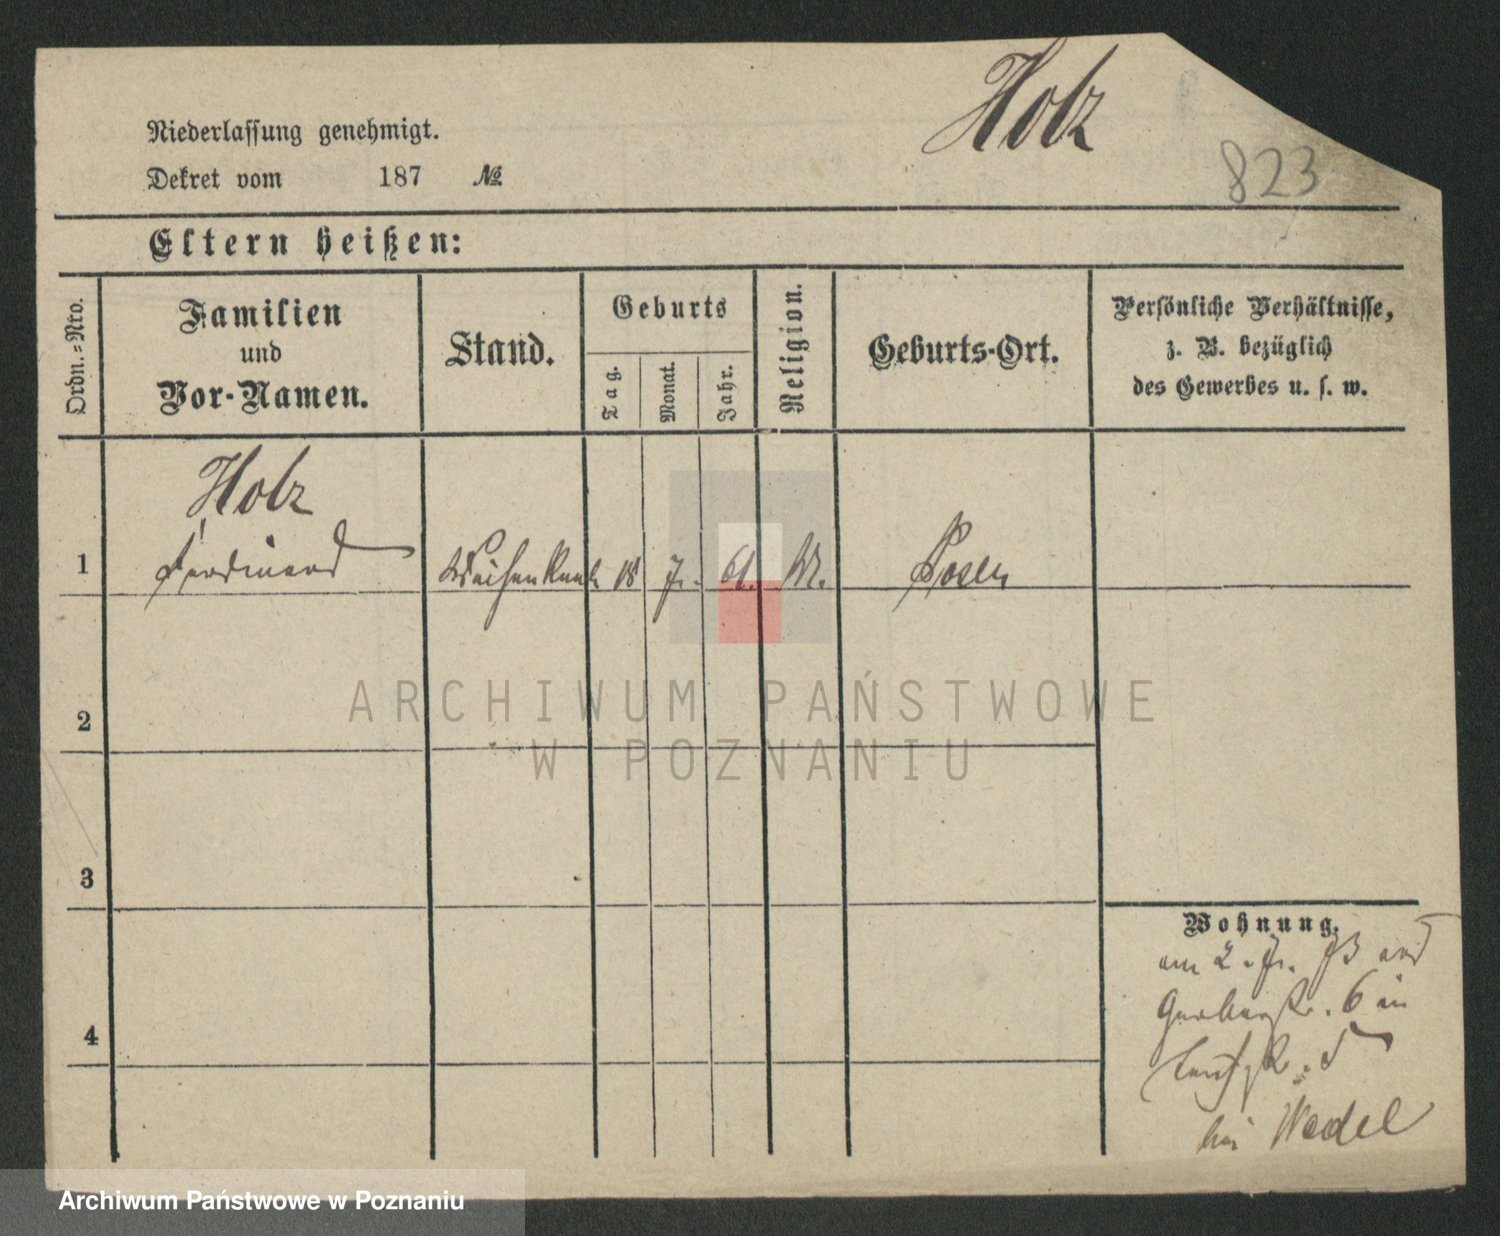 Holz
823
Niederlassung genehmigt.
Dekret vom 187 №
Eltern heißen:
Ordn.=Nro.
Familien
und
Vor-Namen.
Stand.
Geburts
Tag.
Monat.
Jahr.
Religion.
Geburts-Ort.
Persönliche Verhältnisse,
z. B. bezüglich
des Gewerbes u. s. w.
Holz
1 Ferdinand Waisenknabe 18 7. 61. Posen
2
3
4
Wohnung.
am 2. 73 aus
Gerberstr. 6 in
5
bei Wedel
ARCHIWUM PAŃSTWOWE
W POZNANIU
Archiwum Państwowe w Poznaniu